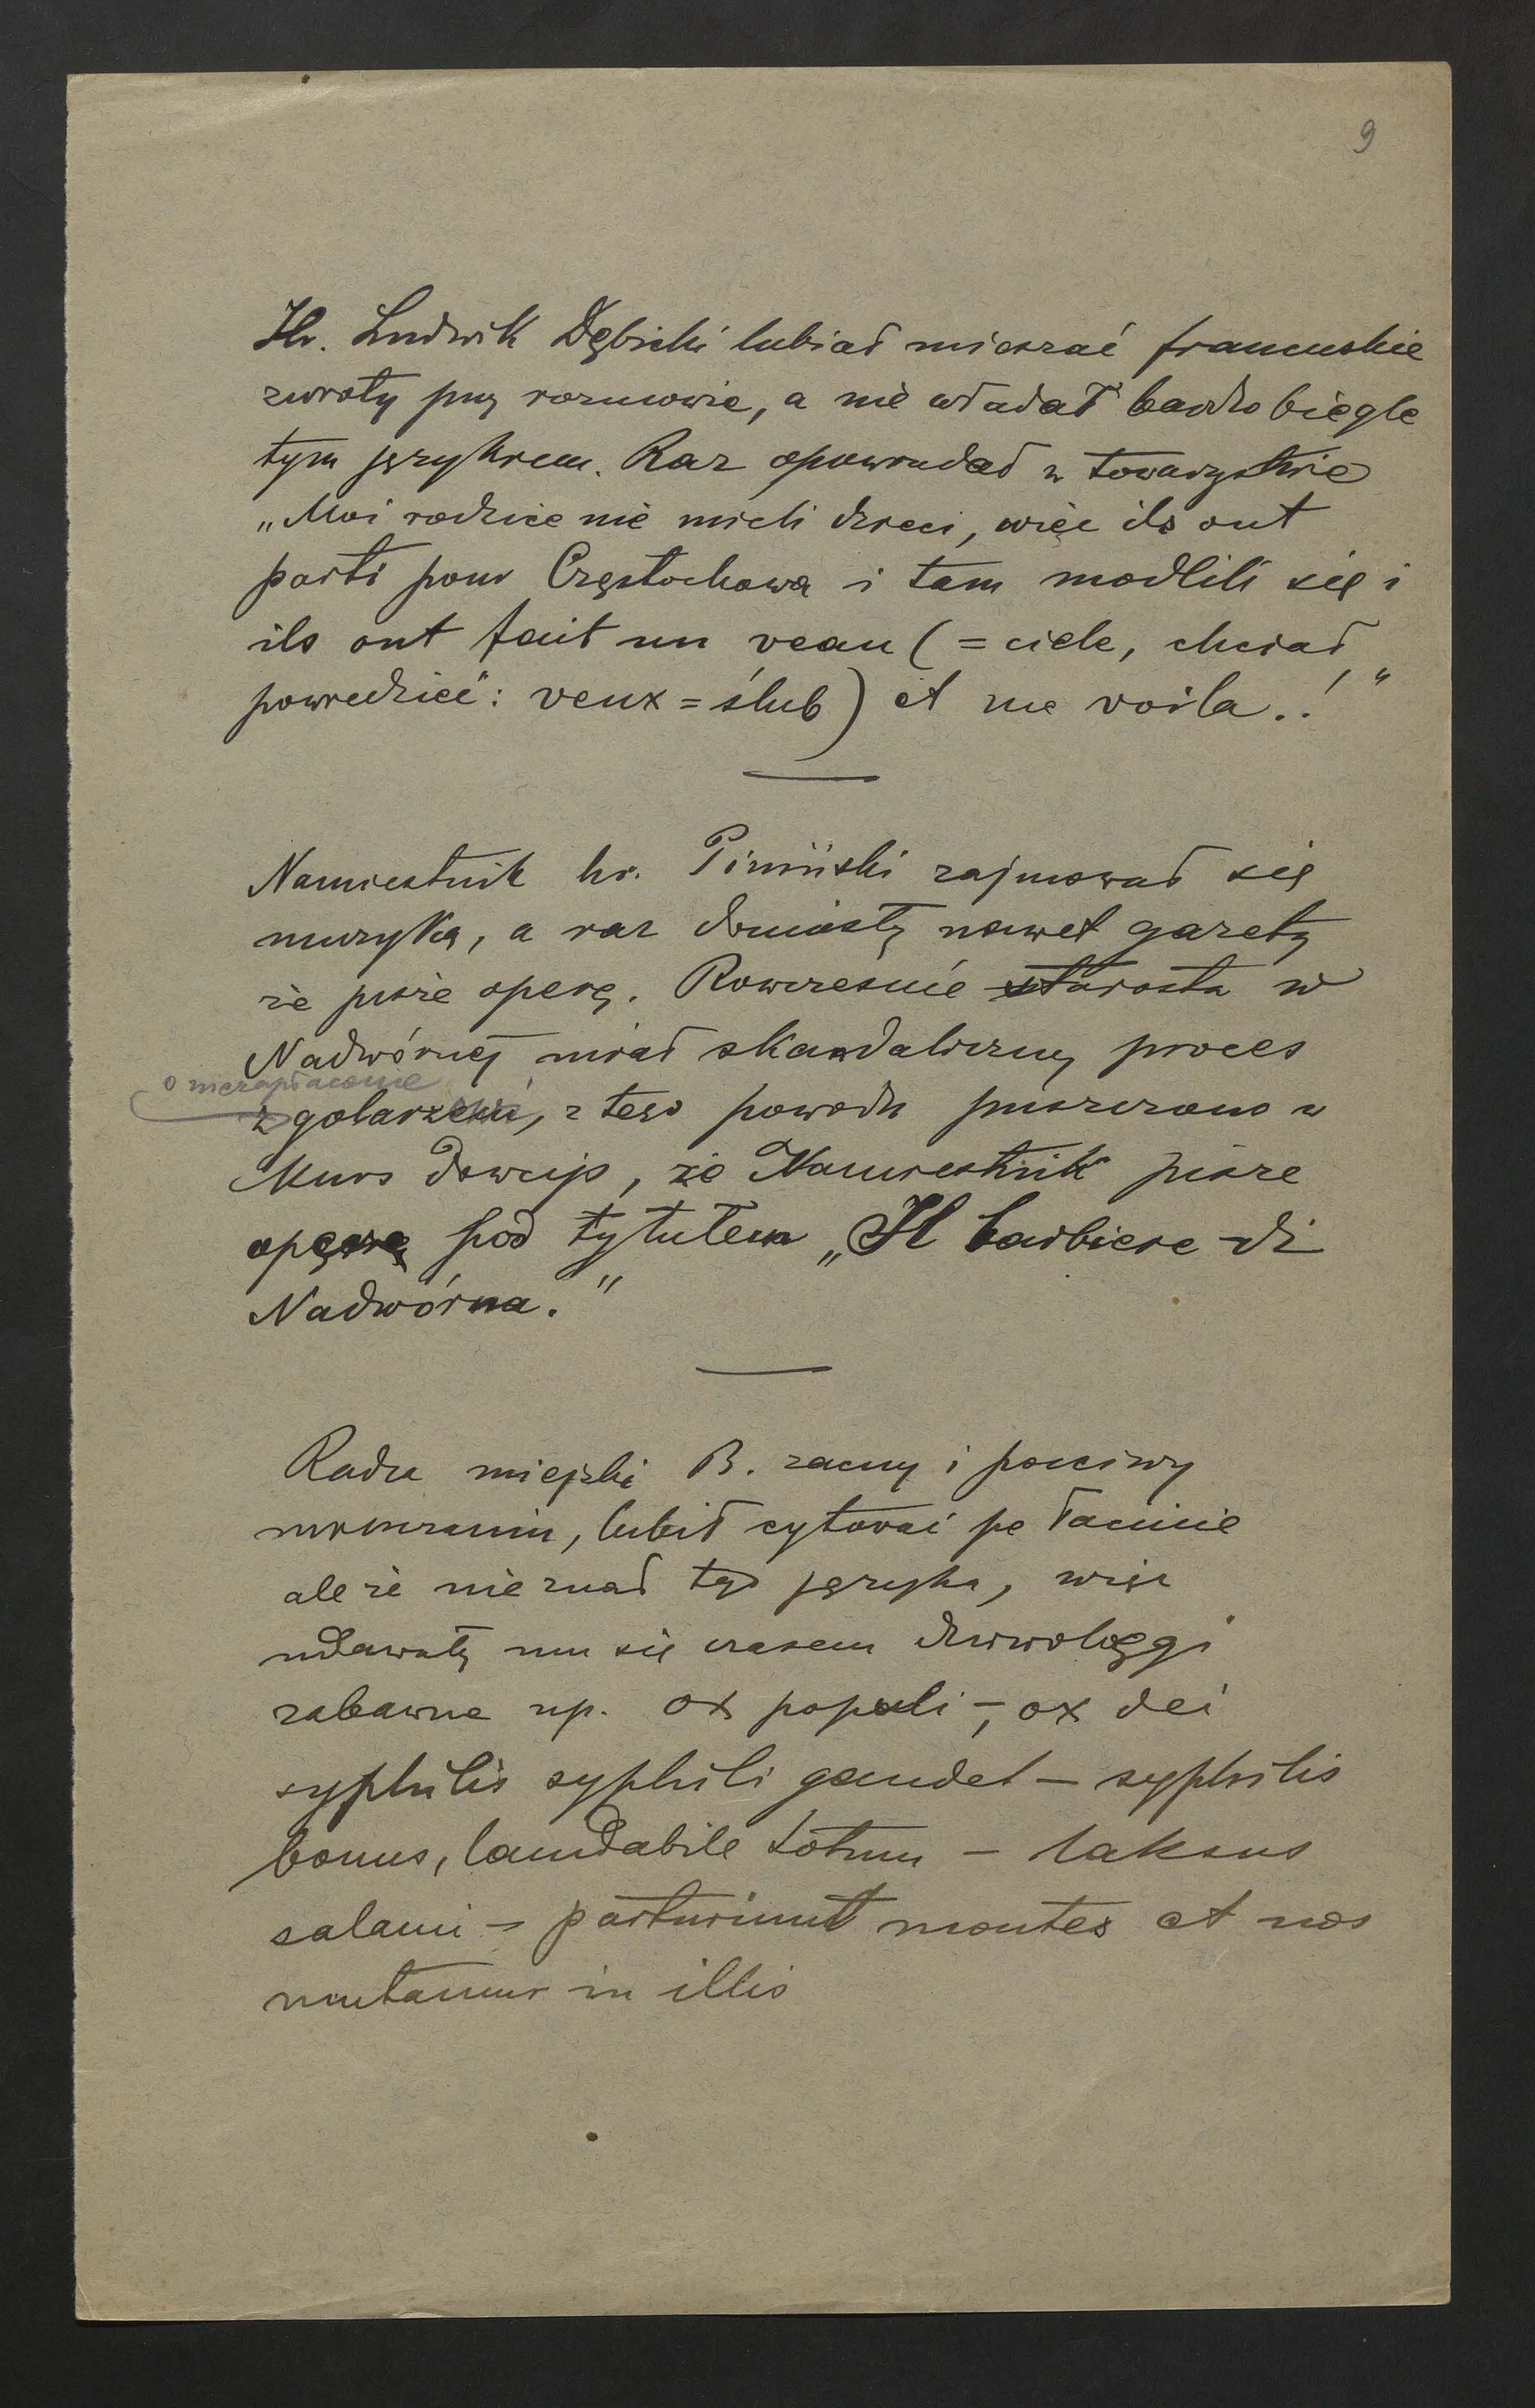 9
Hr. Ludwik Dębicki lubiał mieszać francuskie
zwroty przy rozmowie, a nie władał bardzo biegle
tym językiem. Raz opowiadał w towarzystwie
„Moi rodzice nie mieli dzieci, więc ils ont
parti pour Częstochowa i tam modlili się i
ils ont fait un veau (= ciele, chciał
powiedzieć: veux = ślub) et me voila.!"
Namiestnik hr. Piniński zajmował się
muzyką, a raz doniosły nawet gazety
że pisze operę. Rowcześnie starosta w
Nadwórnej miał skandaliczny proces
o niezapłacenie
z golarzem, z tego powodu puszczono w
kurs dowcip, że Namiestnik pisze
operę pod tytułem „Il barbiere di
Nadwórna."
Radca miejski B. zacny i poczciwy
mieszczanin, lubił cytować po łacinie
ale że nie znał tego języka, więc
udawały mu się czasem dziwolęgi
zabawne np. ox populi –, ox dei
syphilis syphili gaudet – syphilis
bonus, laudabile totum – laksus
salami – parturiunt montes et nos
mutamur in illis